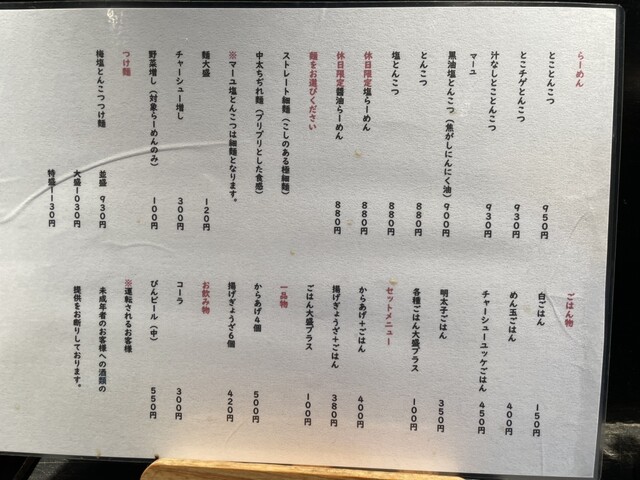 らーめん
とことんこつ 950円
とこチゲとんこつ 930円
汁なしとことんこつ 930円
マーユ
黒油塩とんこつ（焦がしにんにく油） 900円
とんこつ 880円
塩とんこつ 880円
休日限定塩らーめん 880円
休日限定醤油らーめん 880円
麺をお選びください
ストレート細麺（こしのある極細麺）
中太ちぢれ麺（プリプリとした食感）
※マーユ塩とんこつは細麺となります。
麺大盛 120円
チャーシュー増し 300円
野菜増し（対象らーめんのみ） 100円
つけ麺
梅塩とんこつつけ麺
並盛 930円
大盛1030円
特盛1130円
ごはん物
白ごはん 150円
めん玉ごはん 400円
チャーシューユッケごはん 450円
明太子ごはん 350円
各種ごはん大盛プラス 100円
セットメニュー
からあげ+ごはん 400円
揚げぎょうざ+ごはん 380円
ごはん大盛プラス 100円
一品物
からあげ4個 500円
揚げぎょうざ6個 420円
お飲み物
コーラ 300円
びんビール（中） 550円
※運転されるお客様
未成年者のお客様への酒類の
提供をお断りしております。